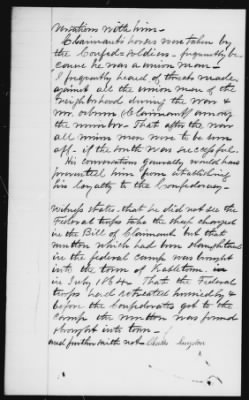 versations with him-
Claimants horses were taken by
the Confed- soldiers- frequently be
cause he was a union man-
I frequently heard of threats made
against all the union men of the
neighborhood during the war &
Mr. Osburn (Claimant) among
the number- That after the war
all union men were to be run
off- if the South was successful.
His conversations generally would have
prevented him from establishing
his loyalty to the Confederacy-
Witness states- that he did not see the
Federal troops take the sheep charged
in the Bill of Claimant but that
mutton which had been slaughtered
in the federal camp was brought
into the town of Kabletown- in
in July 1864- That the Federal
troops had retreated hurriedly &
before the Confederates got to the
camp the mutton was found
& brought into town-
and further saith not-